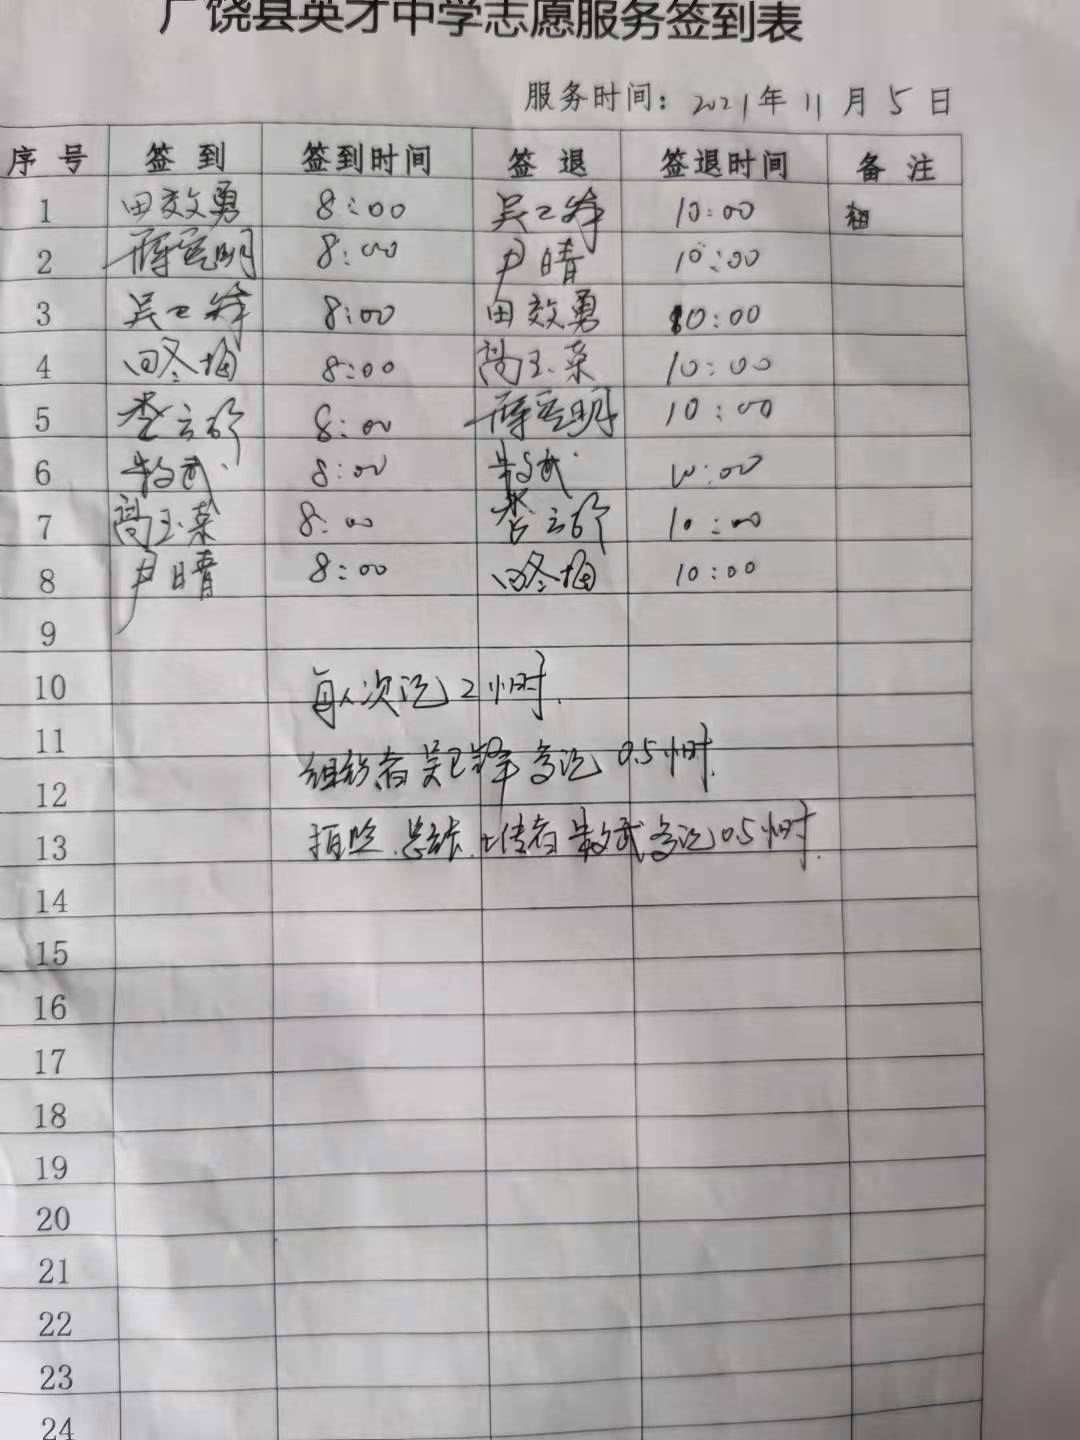 广饶县英才中学志愿服务签到表
服务时间：2021年11月5日
序号 签到 签到时间 签退 签退时间 备注
1 田效勇 8:00 吴卫峰 10:00
2 薛宝明 8:00 尹晴 10:00
3 吴卫峰 8:00 田效勇 10:00
4 田冬梅 8:00 高玉荣 10:00
5 8:00 薛宝明 10:00
6 8:00 10:00
7 高玉荣 8:00 10:00
8 尹晴 8:00 田冬梅 10:00
9
10 每人次记2小时.
11
12 组织者吴卫峰多记0.5小时.
13 拍照、总结、上传者 多记0.5小时.
14
15
16
17
18
19
20
21
22
23
24